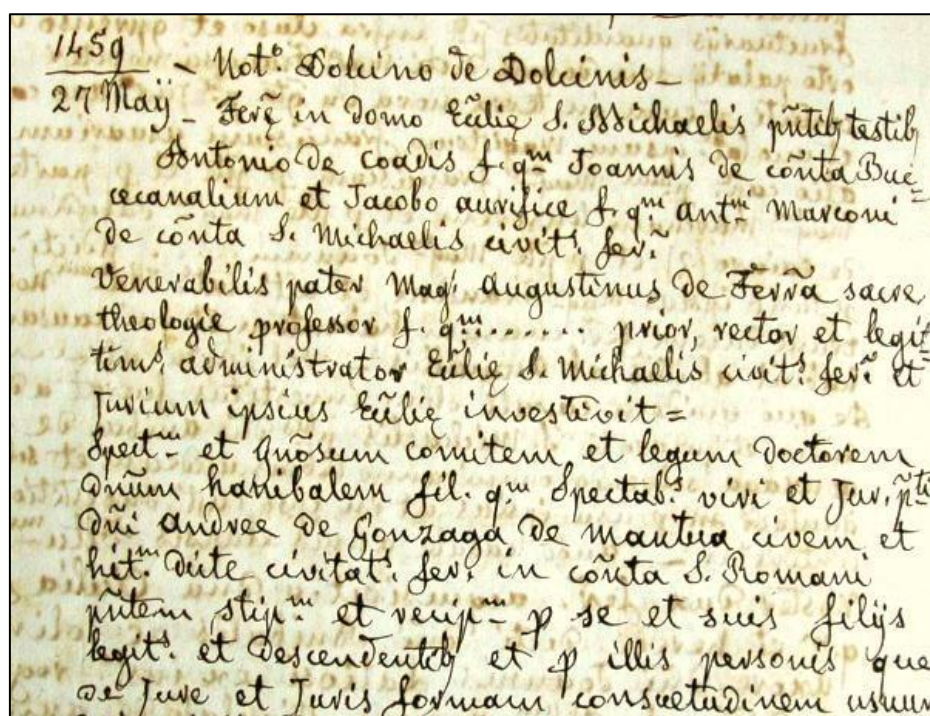 1459
27 Maÿ - Not.º Dolcino de Dolcinis -
Ferę in domo Eũlię S. Michaelis pñtibʒ testibʒ
Antonio de Coadis f. q.m Joannis de cõnta Buc=
cecanalium et Jacobo aurifice f. q.m Ant.mi Marconi
de cõnta S. Michaelis civit.s fer.ę
Venerabilis pater Mag.r Augustinus de Ferrã sacre
theologie professor f. q.m ........ prior, rector et legit=
tim.s administrator Eũlię S. Michaelis civit.s fer.ę et
Jurium ipsius Eũlię investivit =
Spect.m et Gñosum comitem et legum doctorem
Dñum hanibalem fil. q.m Spectab.s viri et Jur. pti
dñi Andree de Gonzaga de mantua civem et
hit.m dicte civitat.s fer.ę in cõnta S. Romani
pñtem stip.m et recip.m ꝑ se et suis filijs
legit.s et descendentibʒ et ꝑ illis personis que
de Jure et Juris formam consuetudinem usum